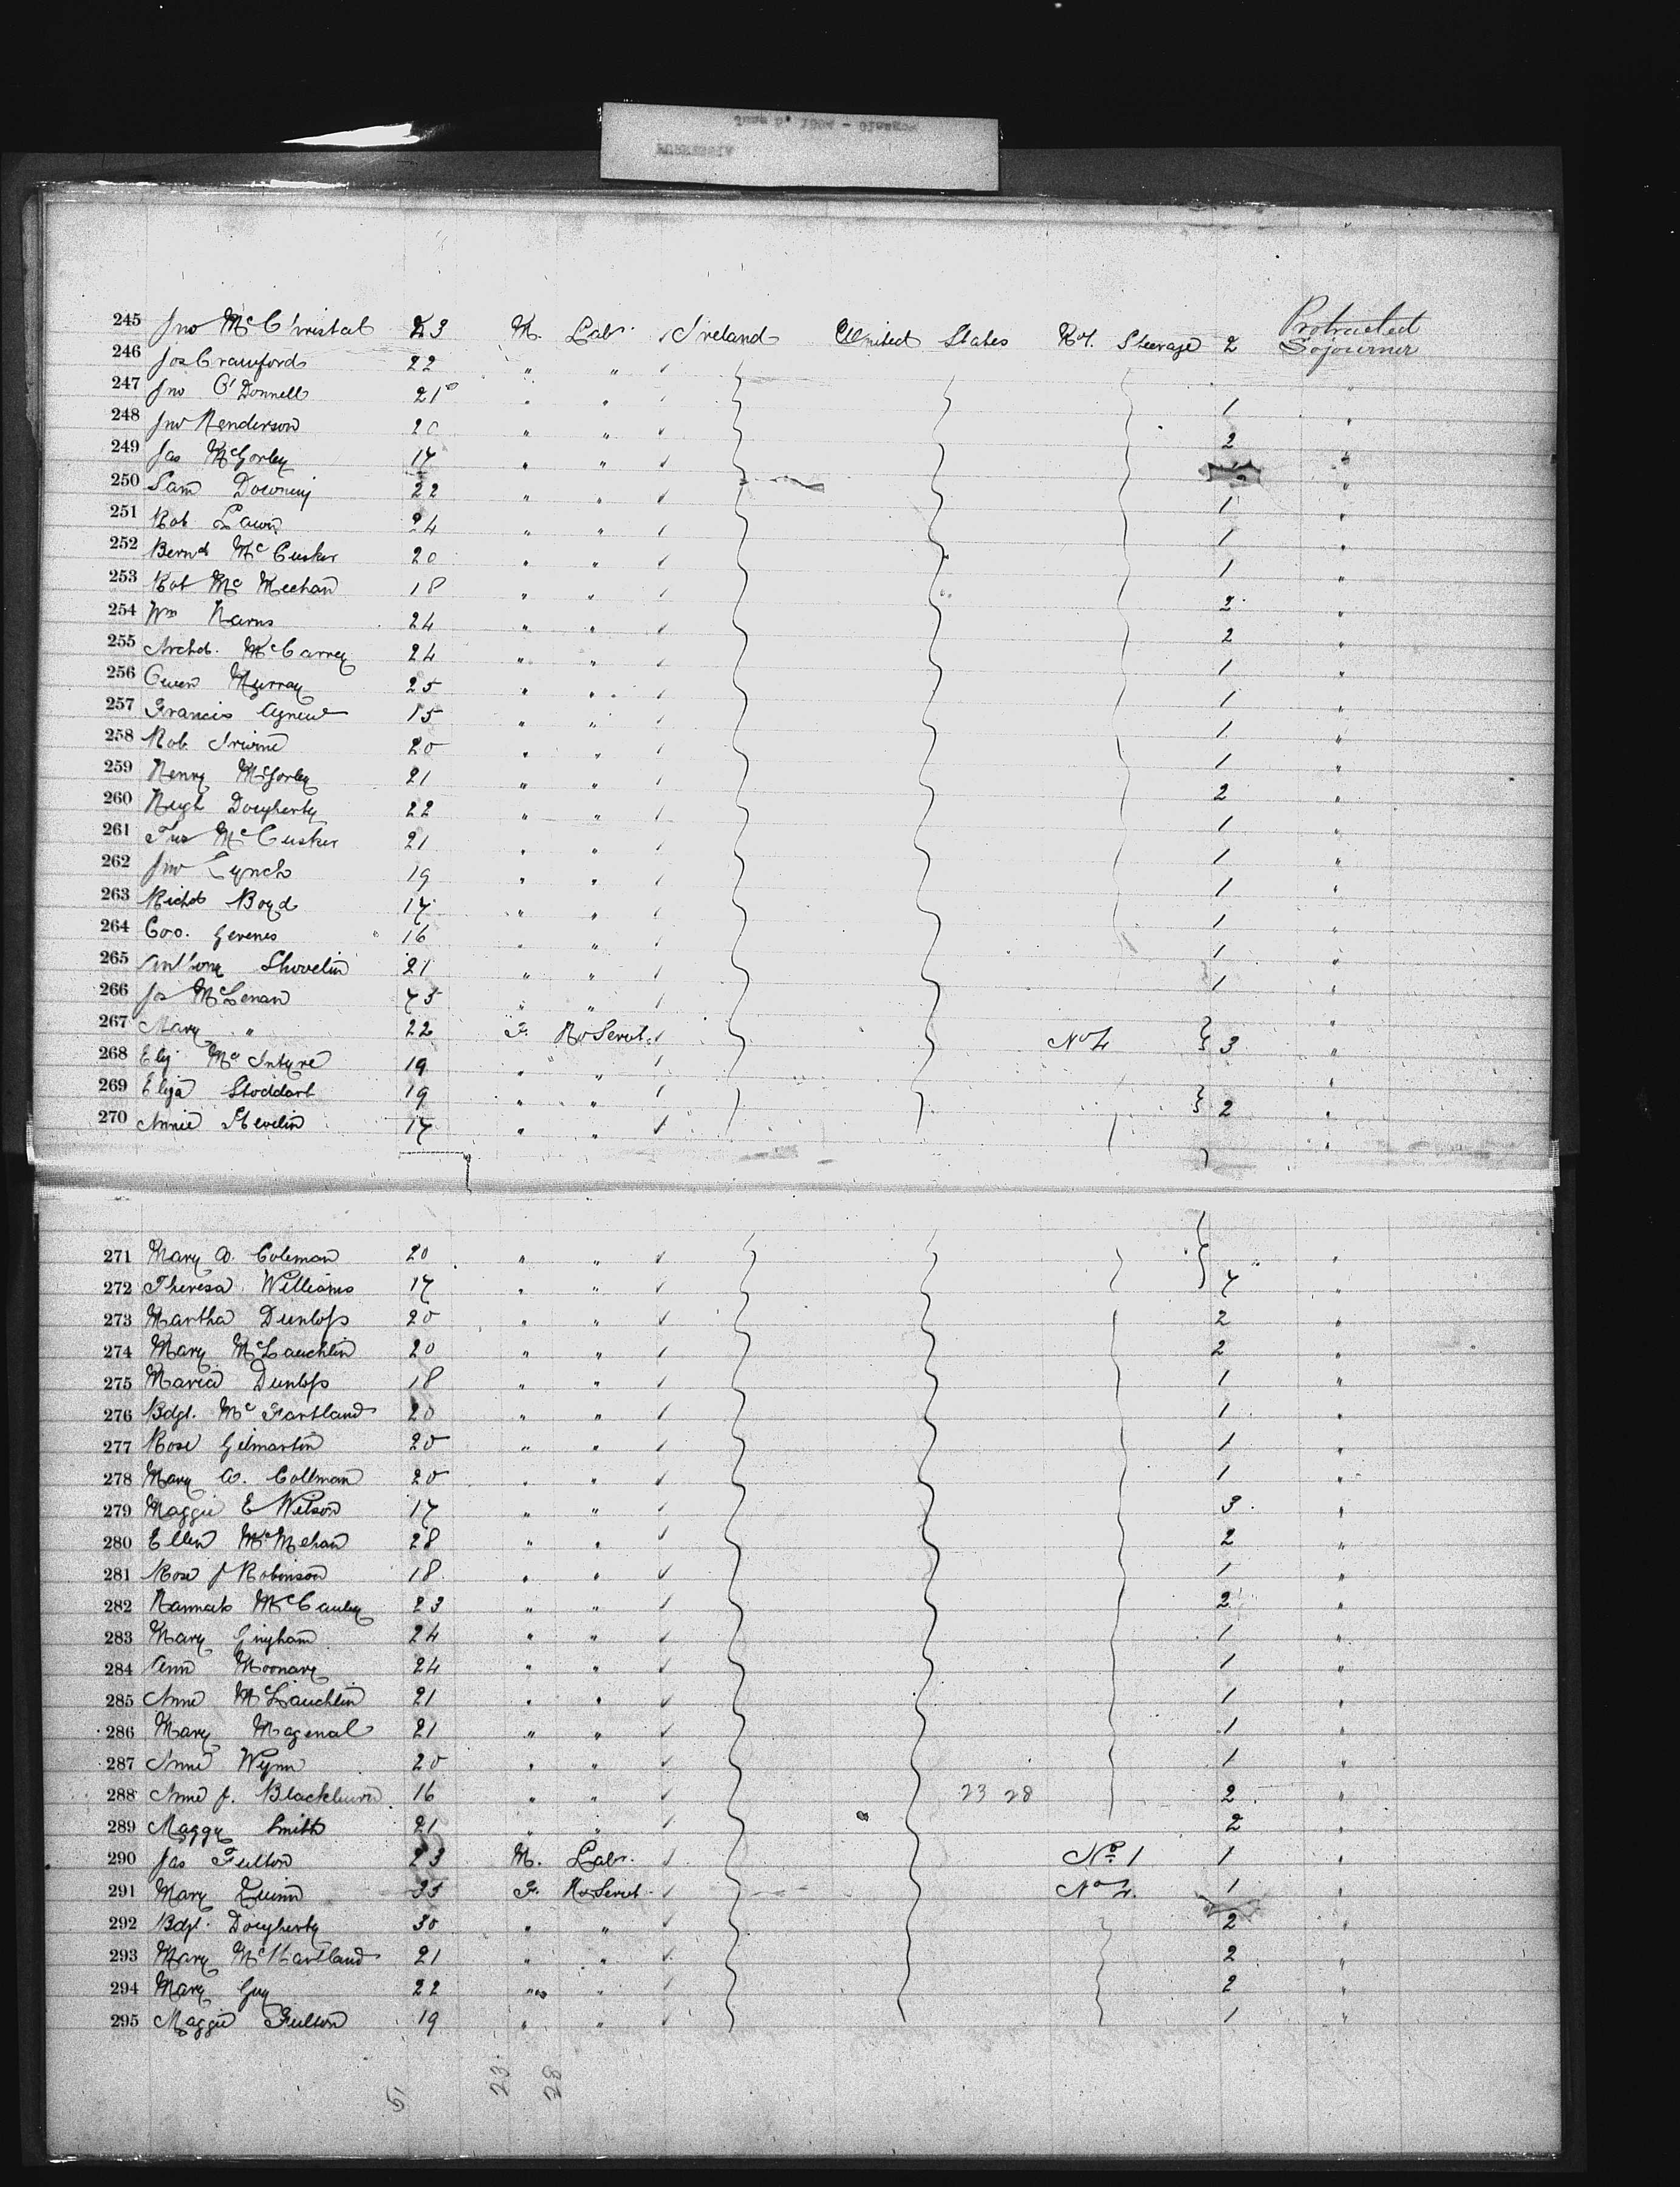 245 Jno McChristal 23 M. Labr. Ireland United States No 1. Steerage 2 Protracted Sojourner
246 Jas Crawford 22 " "
247 Jno O'Donnell 21 " " 1 "
248 Jno Henderson 20 " " 2 "
249 Jas McGorley 17 " " "
250 Sam Downing 22 " " 1 "
251 Rob 24 " " 1 "
252 Bernd McCusker 20 " " 1 "
253 Rob Mc Meehan 18 " " 2 "
254 Wm Harns 24 " " 2 "
255 Archd. McCarrey 24 " " 1 "
256 Owen Murray 25 " " 1 "
257 Francis Agnew 15 " " 1 "
258 Rob Irvine 20 " " 1 "
259 Henry McGorley 21 " " 2 "
260 Hugh Dougherty 22 " " 1 "
261 McCusker 21 " " 1 "
262 Jno Lynch 19 " " 1 "
263 Richd Boyd 17 " " 1 "
264 Geo. 16 " " 1 "
265 Anthony Shovelin 21 " " 1 "
266 Js McLenan " " "
267 Mary " 22 F. Ho Servt. No 4 3 "
268 Eliz Mc Intyre 19 " " "
269 Eliza Stoddart 19 " " 2 "
270 Annie 17 " " "
271 Mary A. Coleman 20 " " " "
272 Theresa Williams 17 " " "
273 Martha Dunlop 20 " " 2 "
274 Mary McLauchlin 20 " " 2 "
275 Maria Dunlop 18 " " 1 "
276 Bdgt. Mc Fartland 20 " " 1 "
277 Rose Gilmartin 20 " " 1 "
278 Mary A. Collman 20 " " 1 "
279 Maggie E Wilson 17 " " 3 "
280 Ellen McMehan 28 " " 2 "
281 Rose J Robinson 18 " " 1 "
282 Hannah McCauley 23 " " 2 "
283 Mary Gingham 24 " " 1 "
284 Ann Moonary 24 " " 1 "
285 Anne McLauchlin 21 " " 1 "
286 Mary Magenal 21 " " 1 "
287 Anne Wynn 20 " " 1 "
288 Anne J. Blackburn 16 " " 23 28 2 "
289 Maggy Smith 21 " " 2 "
290 Jas Fulton 23 M. Labr. No 1 1 "
291 Mary Quinn 35 F. Ho Servt. No 4. 1 "
292 Bdgt. Dougherty 30 " " 2 "
293 Mary McHartland 21 " " 2 "
294 Mary Guy 22 " " 2 "
295 Maggie Fulton 19 " " 1 "
51 23 28